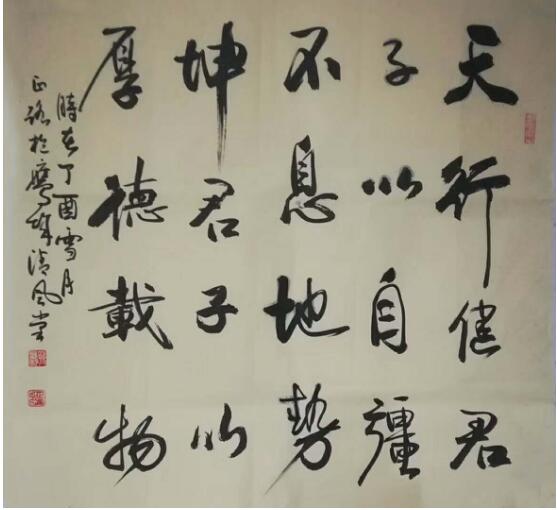 天行健君
子以自彊
不息地势
坤君子以
厚德載物
時在丁酉雪月
正路於鹰城清风堂